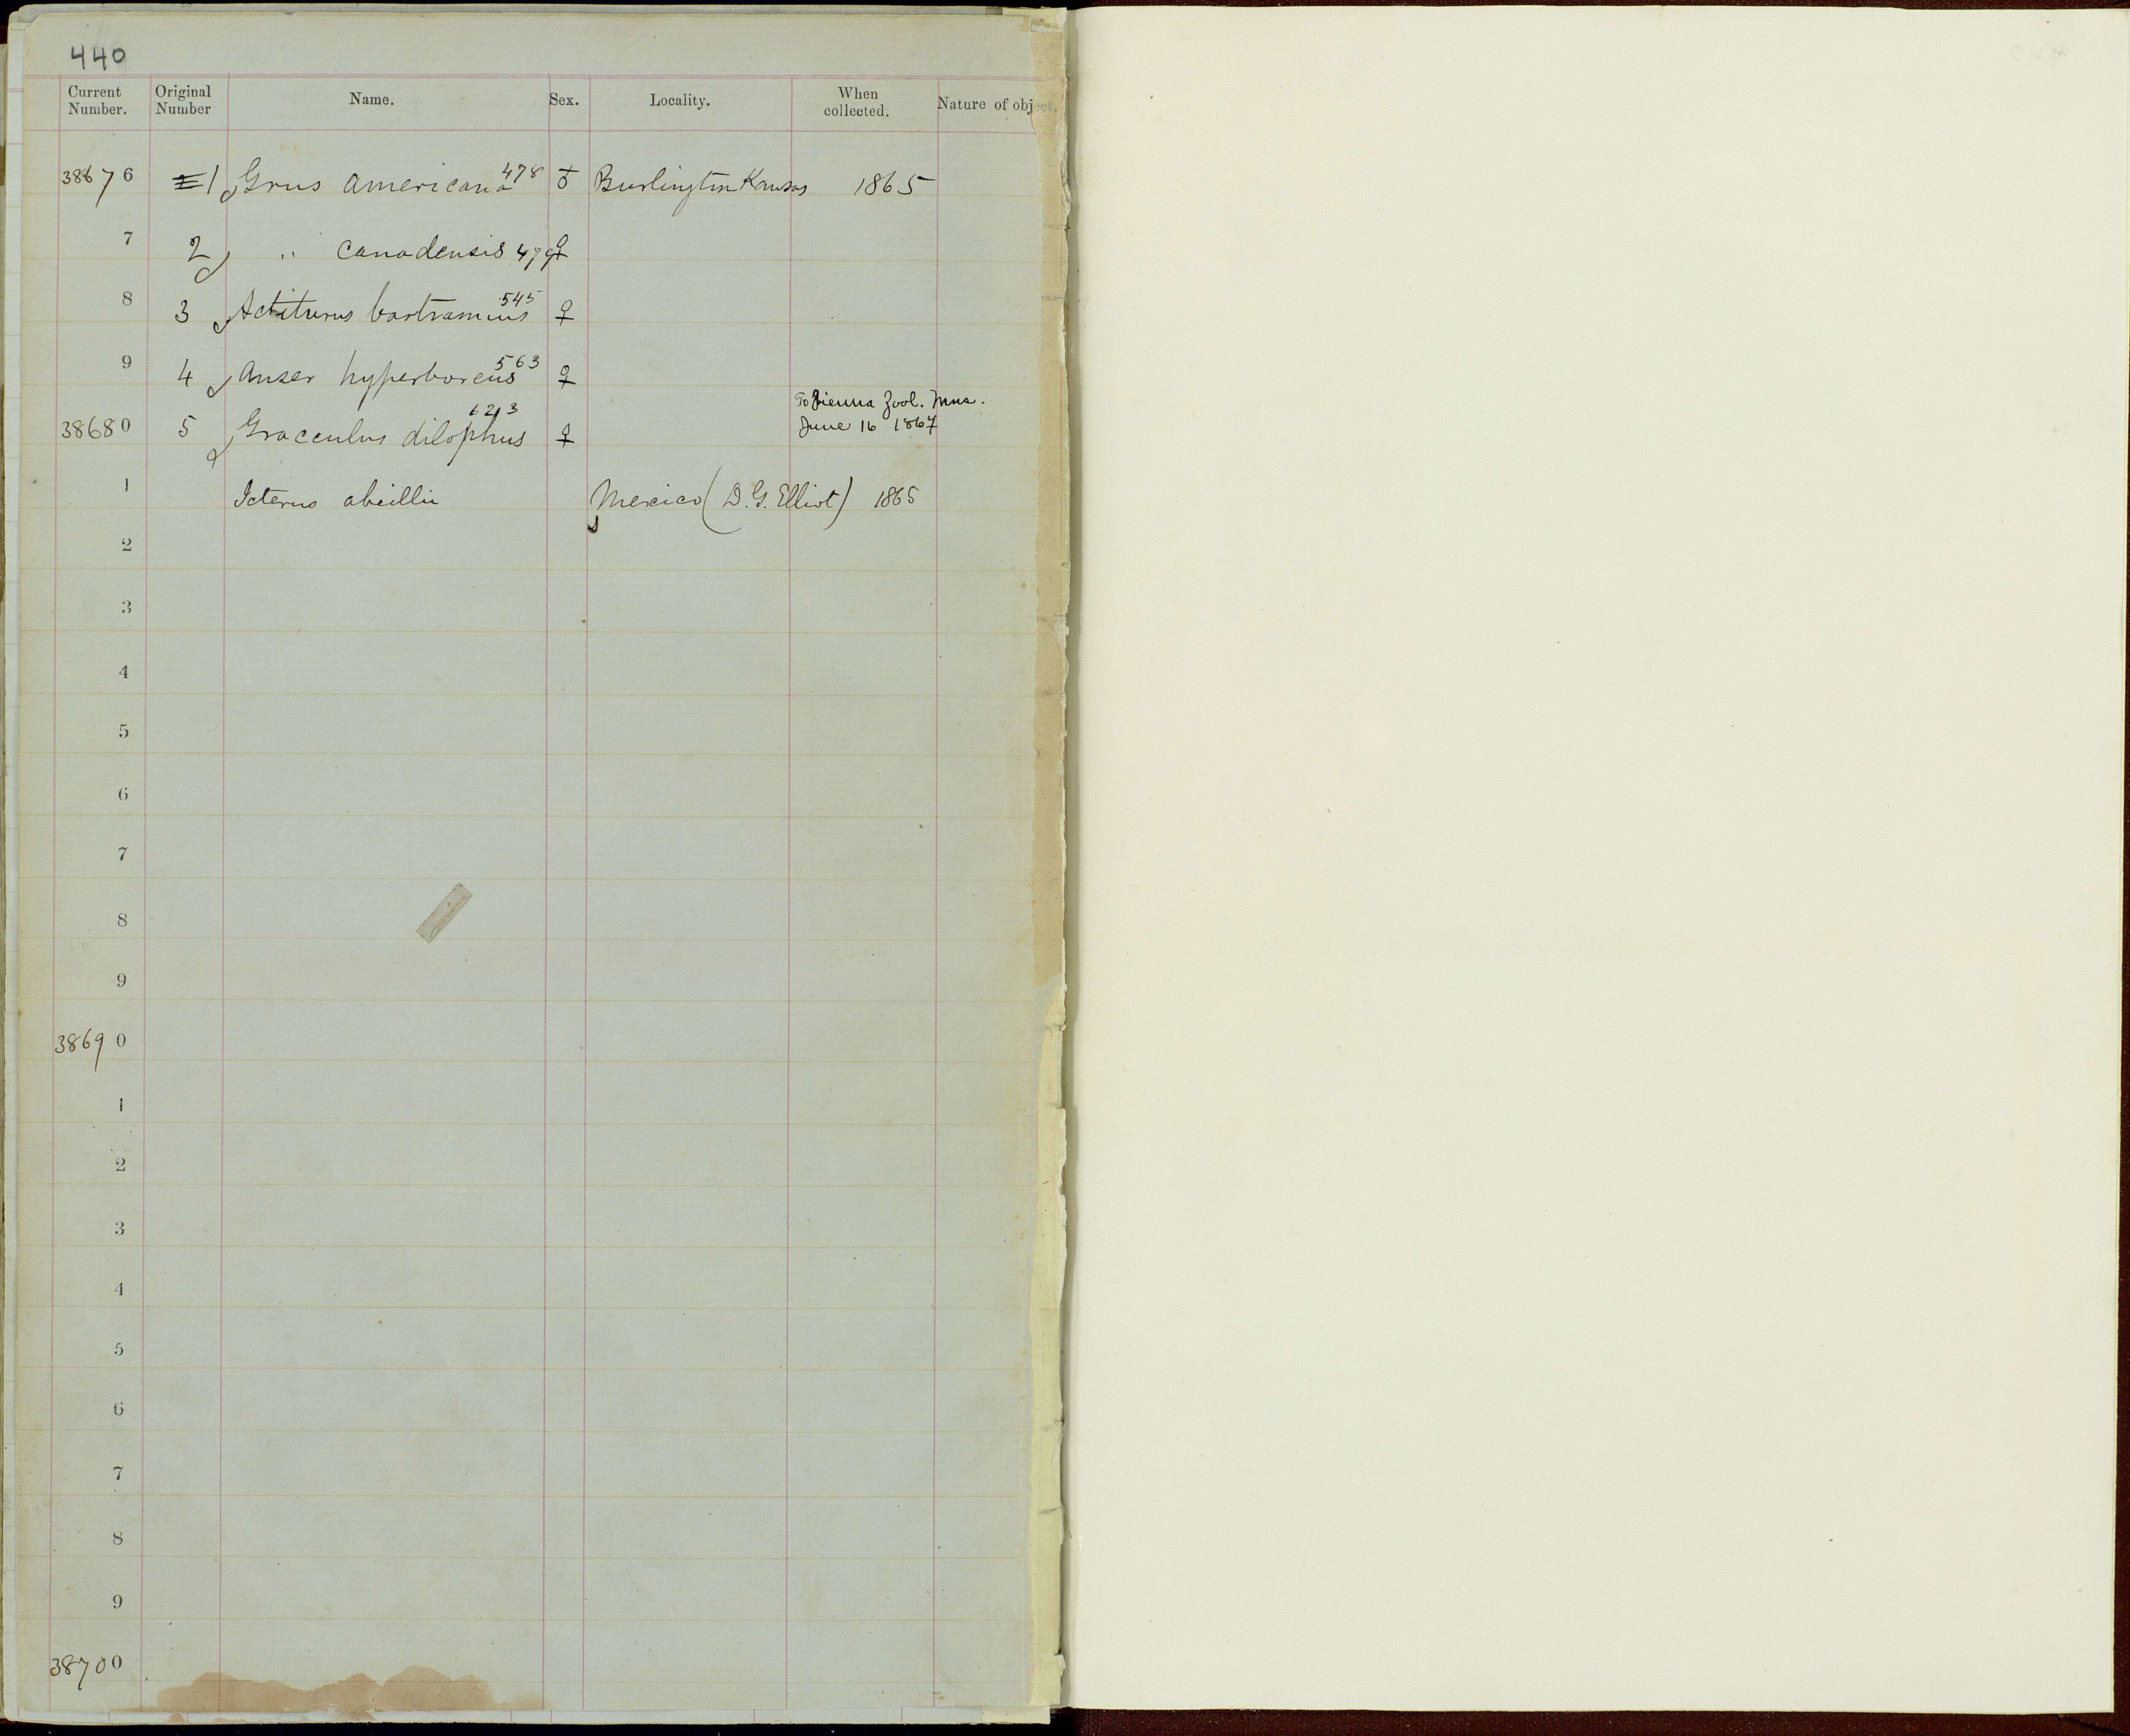 440
Current Number. Original Number Name. Sex. Locality. When collected. Nature of object.
38676 1 Grus americana 478 ♂ Burlington Kansas 1865
7 2 " canadensis 479 ♀
8 3 Actiturus bartramius 545 ♀
9 4 Anser hyperboreus 563 ♀
To Vienna Zool. Mus.
38680 5 Gracculus dilophus 623 ♀ June 16 1867
1 Icterus abeillii Mexico (D. G. Elliot) 1865
2
3
4
5
6
7
8
9
38690
1
2
3
4
5
6
7
8
9
38700